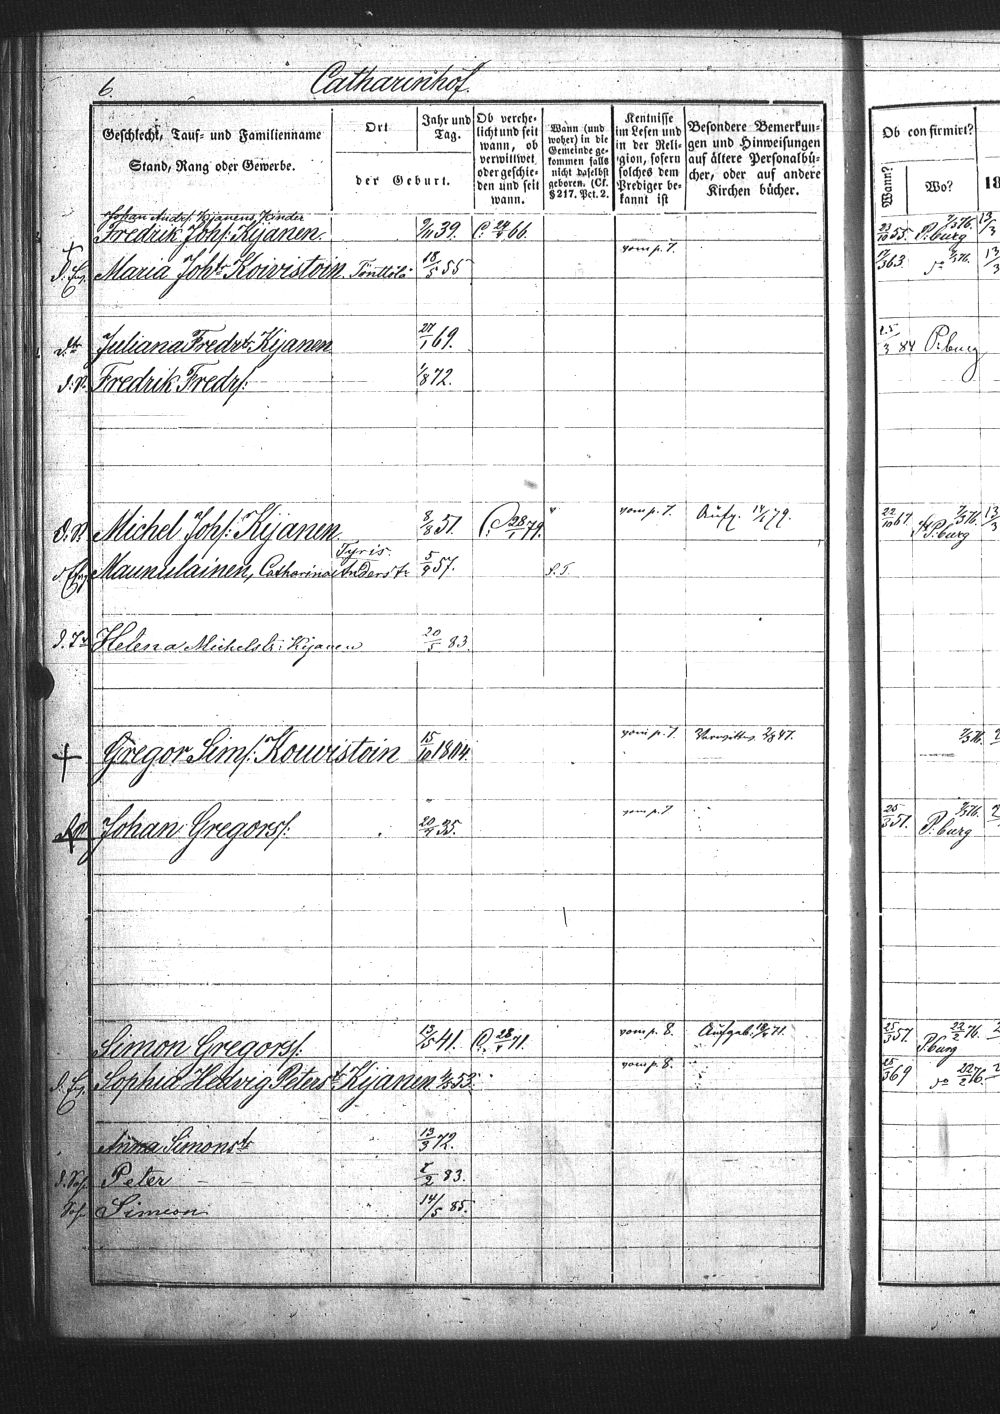 6.
Catharinhof.
Geschlecht, Tauf- und Familienname
Stand, Rang oder Gewerbe.
Ort
der Geburt.
Jahr und
Tag.
Ob verehe-
licht und seit
wann, ob
verwittwet
oder geschie-
den und seit
wann.
Wann (und
woher) in die
Gemeinde ge-
kommen falls
nicht daselbst
geboren. (Cf.
§ 217. Pct. 2.
Kentnisse
im Lesen und
in der Reli-
gion, sofern
solches dem
Prediger be-
kannt ist
Besondere Bemerkun-
gen und Hinweisungen
auf ältere Personalbü-
cher, oder auf andere
Kirchen bücher.
Ob confirmirt?
Wann?
Wo?
18
Johan Andrs. Kijanens Kinder
Fredrik Johs: Kijanen. 9/11 39. C. 24/4 66. 23/10 55. P:burg 7/3 76. 13/3
Maria Joh:tr Koivistoin. Tönttölö 18/5 55 vom p. 7. 17/3 63. do 7/3 76. 13/3
Juliana Fredr:tr Kijanen 27/1 69. 25/3 84 P:burg
Fredrik Fredrs: 1/8 72.
Michel Johs: Kijanen. 8/8 51. C. 28/1 79. vom p. 7. Aufg. 14/1 79. 22/10 67. P:burg 7/3 76. 13/3
Tyris.
Maunulainen, Catharina Anderstr 5/9 57.
Helena Michelstr: Kijanen 20/5 83.
Gregor Sims: Kouvistoin 15/10 1804. vom p. 7. Verwittw. 2/8 47. 7/3 76.
Johan Gregors: 20/4 35. vom p. 7 25/3 51. P:burg 7/3 76.
Simon Gregors: 13/5 41. C. 28/1 71. vom p. 8. Aufgeb. 18/1 71. 25/3 57. P:burg 22/2 76.
Sophia Hedvig Peterstr Kijanen 1/2 53. vom p. 8. 25/3 69 do 22/2 76.
Anna Simonstr 13/3 72.
Peter 7/2 83.
Simeon 14/5 85.